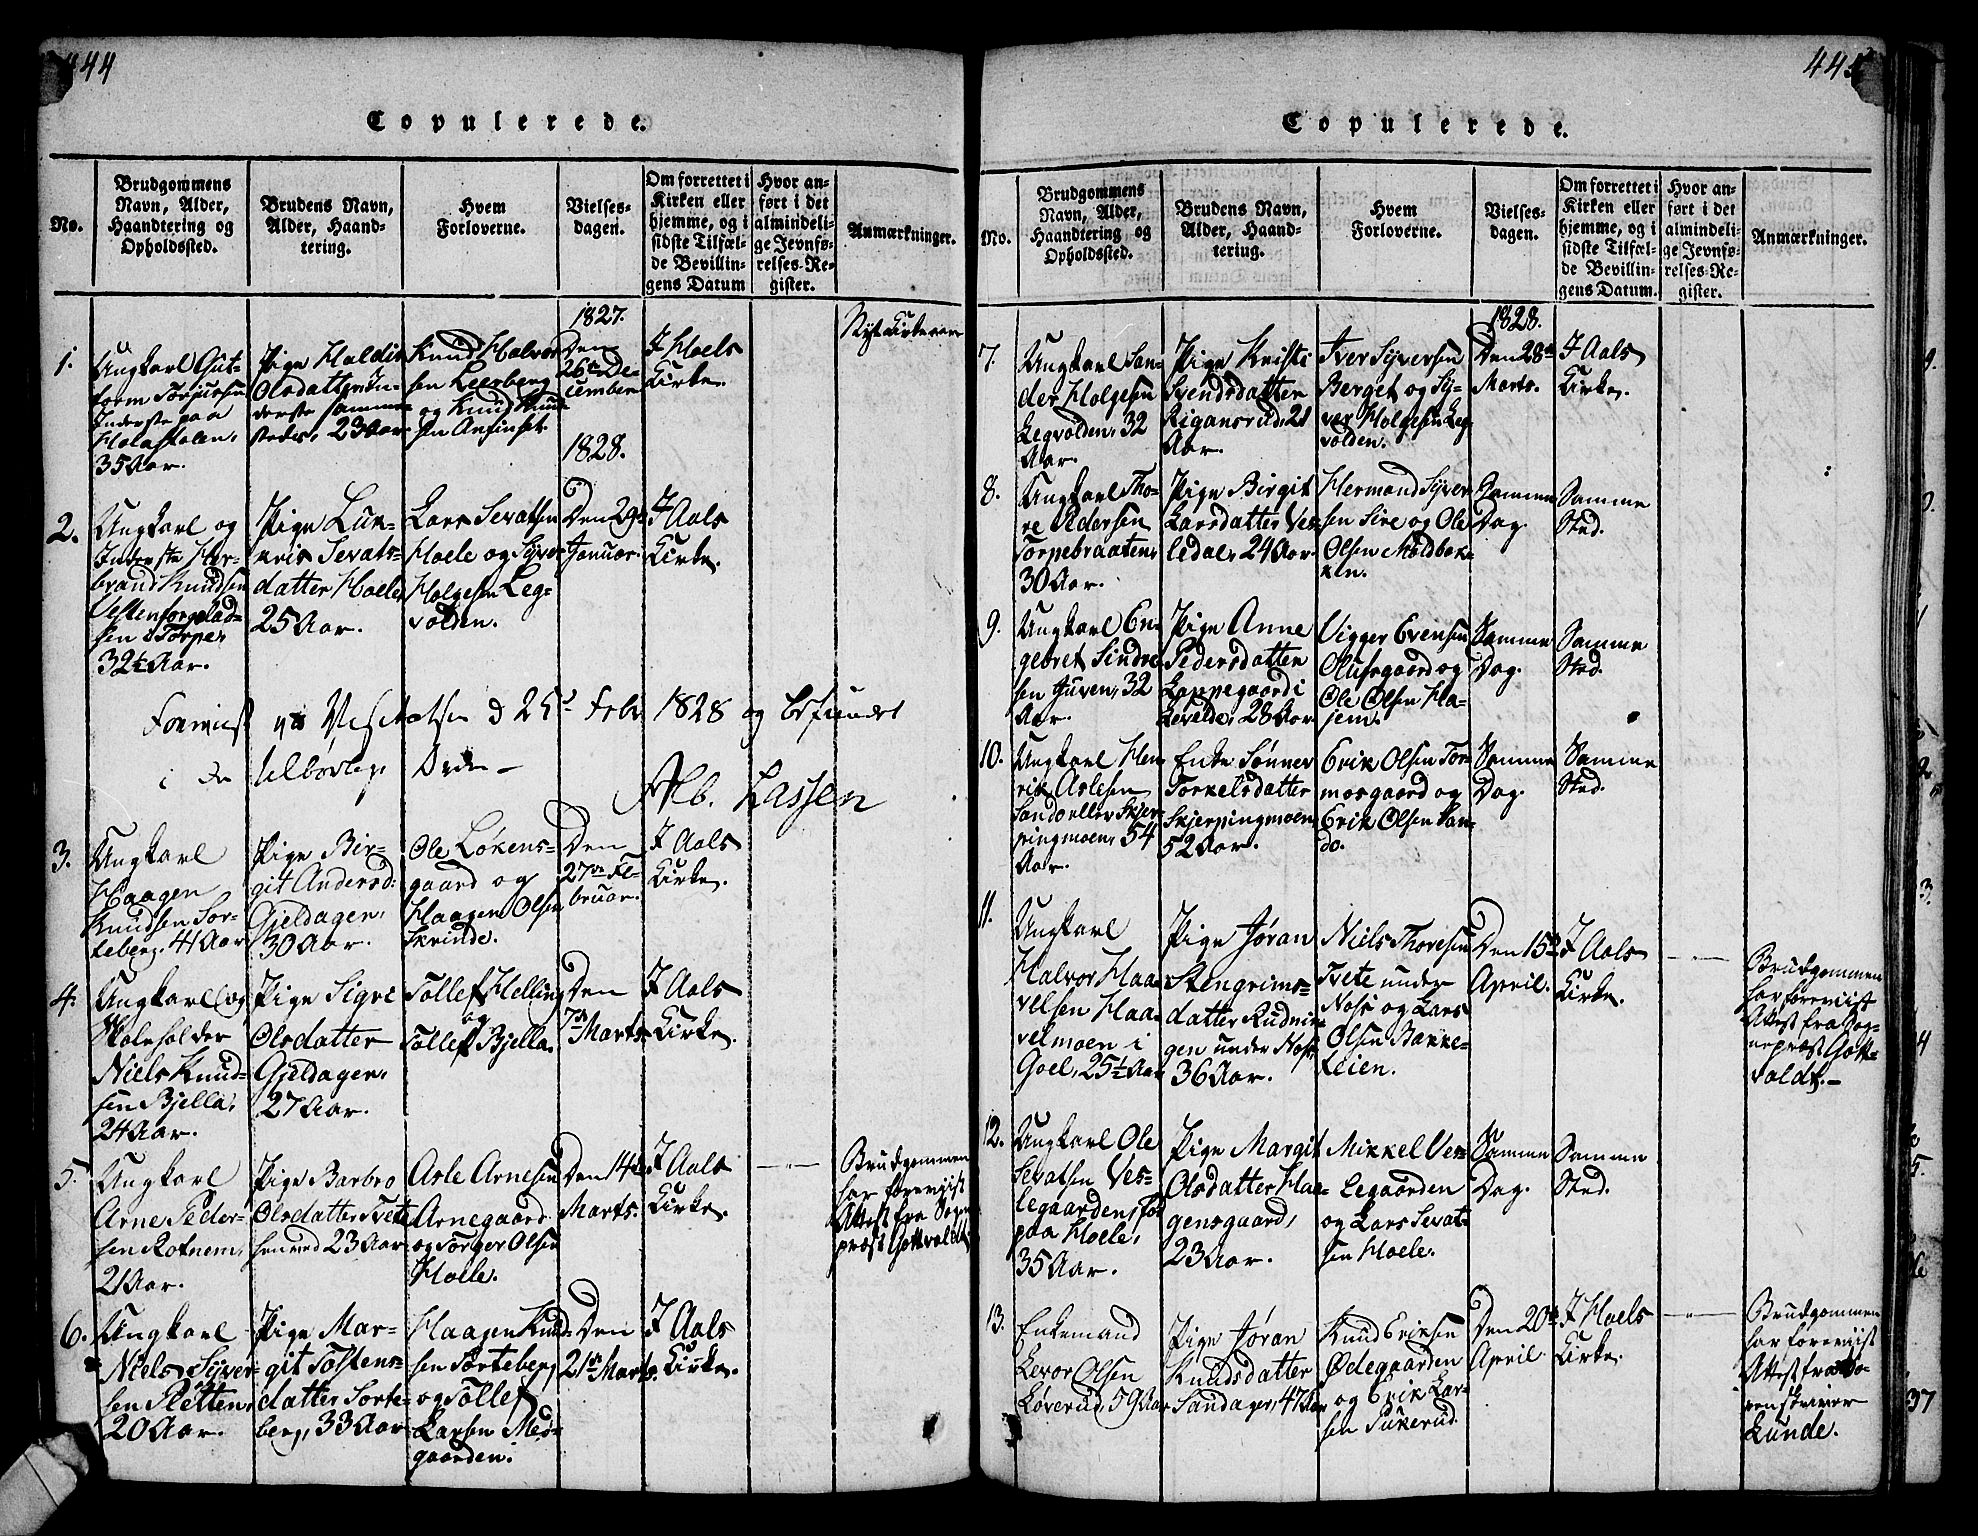 444
Copulerede.
No.
Brudgommens
Navn, Alder,
Haandtering og
Opholdssted.
Brudens Navn,
Alder, Haand-
tering.
Hvem
Forloverne.
Vielses-
dagen.
Om forrettet i
Kirken eller
hjemme, og i
sidste Tilfæl-
de Bevillin-
gens Datum
Hvor an-
ført i det
almindeli-
ge Jevnfø-
relses-Re-
gister.
Anmærkninger.
1.
Ungkarl Gut-
torm Torjusen
Inderste paa
Holaskolen,
35 Aar.
Pige Haldis
Olsdatter In-
derste samme-
steds, 23 Aar
Knud Halvor-
sen Leerberg
og Knud Knud-
sen Anfinset
1827.
Den
26de De-
cember
I Hoels
Kirke.
1828.
2.
Ungkarl og
Inderste Her-
brand Knudsen
Vestenforgjelad-
sen i Torpe,
32½ Aar.
Pige Lun-
kris Sevats-
datter Hoele,
25 Aar.
Lars Sevatsen
Hoele og Syver
Holgesen Leg-
volden.
Den 29de
Januar.
I Aals
Kirke.
Foreviist ved Visitatsen d 25de Febr 1828 og befundet
i
Orden
Lassen
3.
Ungkarl
Haagen
Knudsen Sor-
teberg, 41 Aar
Pige Bir-
git Andersd:
Gjeldagen,
30 Aar.
Ole Løkens-
gaard og
Haagen Olsen
Skrinde.
Den
27de Fe-
bruar.
I Aals
Kirke.
4.
Ungkarl og
Skoleholder
Niels Knud-
sen Bjella,
24 Aar.
Pige Sigri
Olsdatter
Gjeldagen,
27 Aar.
Tollef Helling
og
Tollef Bjella.
Den
7de Marts.
I Aals
Kirke.
5.
Ungkarl
Arne Peder-
sen Rotnem,
21 Aar.
Pige Barbro
Olsdatter Tvete
23 Aar
Asle Arnesen
Arnegaard
og Torger Olsen
Hoele.
Den 14de
Marts.
I Aals
Kirke.
Brudgommen
har foreviist
Attest fra Sogne-
præst Gottvaldt
6.
Ungkarl
Niels Syver-
sen Sletten,
20 Aar.
Pige Mar-
git Tostens-
datter Sorte-
berg, 33 Aar
Haagen Knud-
sen Sorteberg
og Tollef
Larsen Medg-
gaarden.
Den
21de Marts.
I Aals
Kirke.
445
Copulerede.
No.
Brudgommens
Navn, Alder,
Haandtering og
Opholdssted.
Brudens Navn,
Alder, Haand-
tering.
Hvem
Forloverne.
Vielses-
dagen.
Om forrettet i
Kirken eller
hjemme, og i
sidste Tilfæl-
de Bevillin-
gens Datum.
Hvor an-
ført i det
almindeli-
ge Jevnfø-
relses-Re-
gister.
Anmærkninger.
7.
Ungkarl San-
der Holgesen
Legvolden, 32
Aar.
Pige Kristi
Svendsdatter
Rigansrud, 21
Aar.
Iver Syversen
Berget og Sy-
ver Holgesen Leg-
volden.
1828.
Den 28de
Marts.
I Aals
Kirke.
8.
Ungkarl Tho-
re Pedersen
Torpebraaten,
30 Aar.
Pige Birgit
Larsdatter Ves-
ledal, 24 Aar
Hermand Syver-
sen Sire og Ole
Olsen Moldbak-
ken.
Samme
Dag.
Samme
Sted.
9.
Ungkarl En-
gebret Sindre-
sen Juven, 32
Aar.
Pige Anne
Pedersdatter
Lappegaard i
Levelde, 28 Aar
Vigger Evensen
Olufsgaard og
Ole Olsen Ha-
jem.
Samme
Dag.
Samme
Sted.
10.
Ungkarl Hen-
rik Aslesen
Sando eller Skjer-
pingmoen, 54
Aar.
Enke Sønnev
Torkelsdatter
Skjerpingmoen
52 Aar.
Erik Olsen Tor-
mosgaard og
Erik Olsen San-
do.
Samme
Dag.
Samme
Sted.
11.
Ungkarl
Halvor Haa-
velsen Haa-
velmoen i
Goel, 25½ Aar
Pige Jøran
Stengrims-
datter Rudnin-
gen under Næs,
36 Aar.
Niels Thoresen
Tvete under
Næs og Lars
Olsen Bakke-
teien.
Den 15de
April.
I Aals
Kirke.
Brudgommen
har foreviist
Attest fra Sog-
nepræst Gott-
valdt.
12.
Ungkarl Ole
Sevatsen Ves-
legaarden,
paa Hoele,
35 Aar.
Pige Margit
Olsdatter Haa-
gensgaard,
23 Aar.
Mikkel Ves-
legaarden
og Lars Sevat-
sen Hoele.
Samme
Dag.
Samme
Sted.
13.
Enkemand
Levor Olsen
Løverud 59 Aar
Pige Jøran
Knudsdatter
Sandager, 47 Aar
Knud Eriksen
Ødegaarden
og Erik Lar-
sen Sukerud
Den 20de
April
I Hoels
Kirke.
Brudgommen
har foreviist
Attest fra So-
renskriver
Lunde.